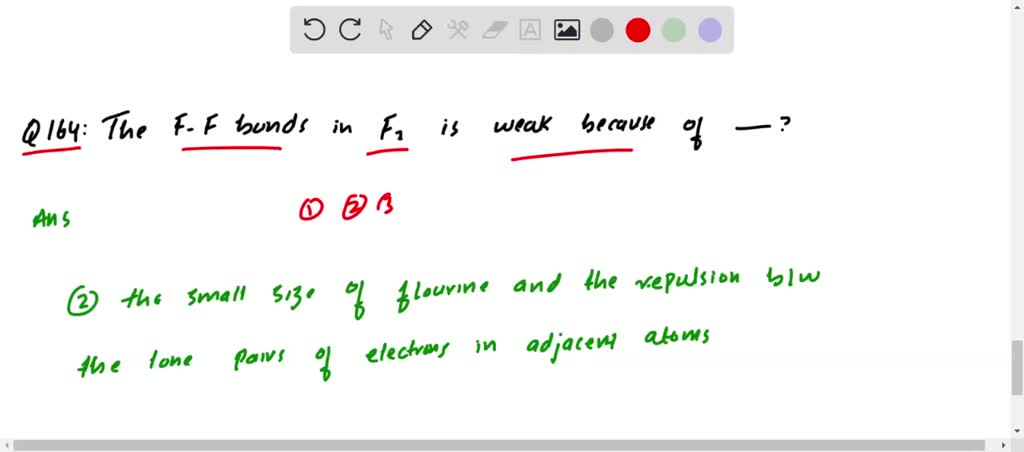 Q164: The F-F bonds in F₂ is weak because of —?
Ans
① ② 3
② the small size of flourine and the repulsion b/w
the lone pairs of electrons in adjacent atoms